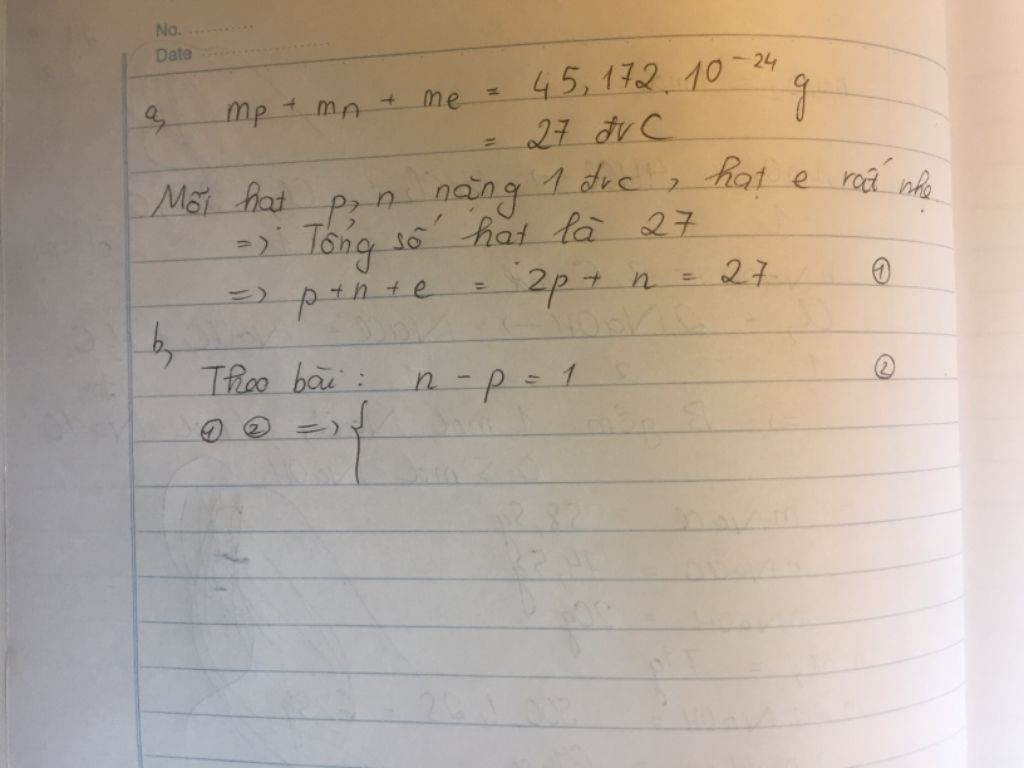 No. ..........
Date ......................
a, mp + mn + me = 45,172. 10⁻²⁴ g
= 27 đvC
Mỗi hạt p, n nặng 1 đvc, hạt e rất nhẹ
=> Tổng số hạt là 27
=> p + n + e = 2p + n = 27 ①
b,
Theo bài : n - p = 1 ②
① ② => {